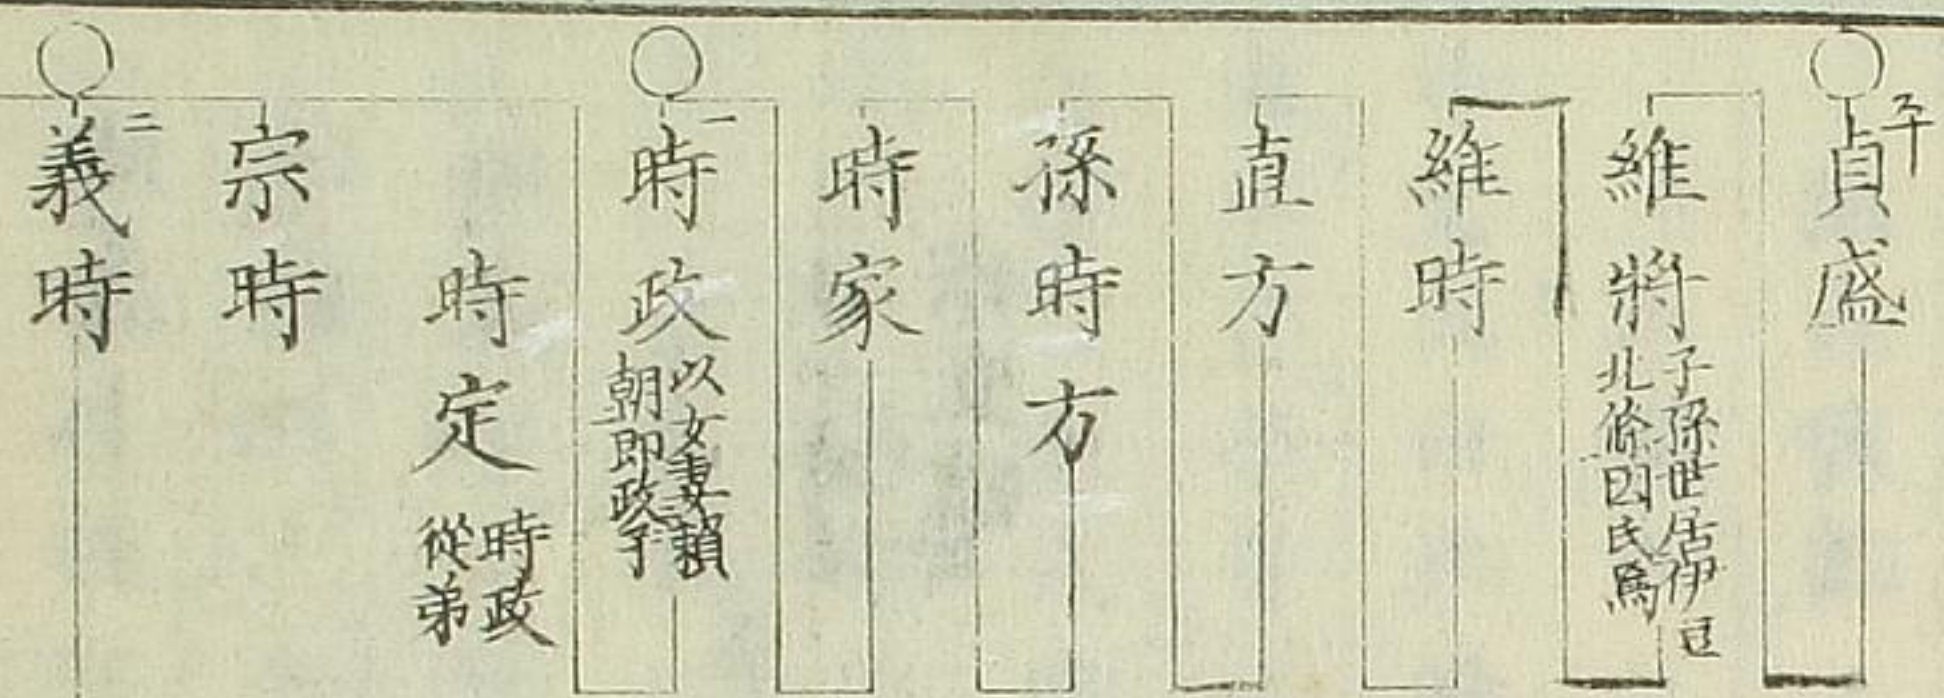 子
貞盛
維將
子孫世居伊豆
北條因氏焉
維時
直方
孫時方
時家
一
時政
以女妻賴
朝即政子
時定
時政
從弟
宗時
二
義時